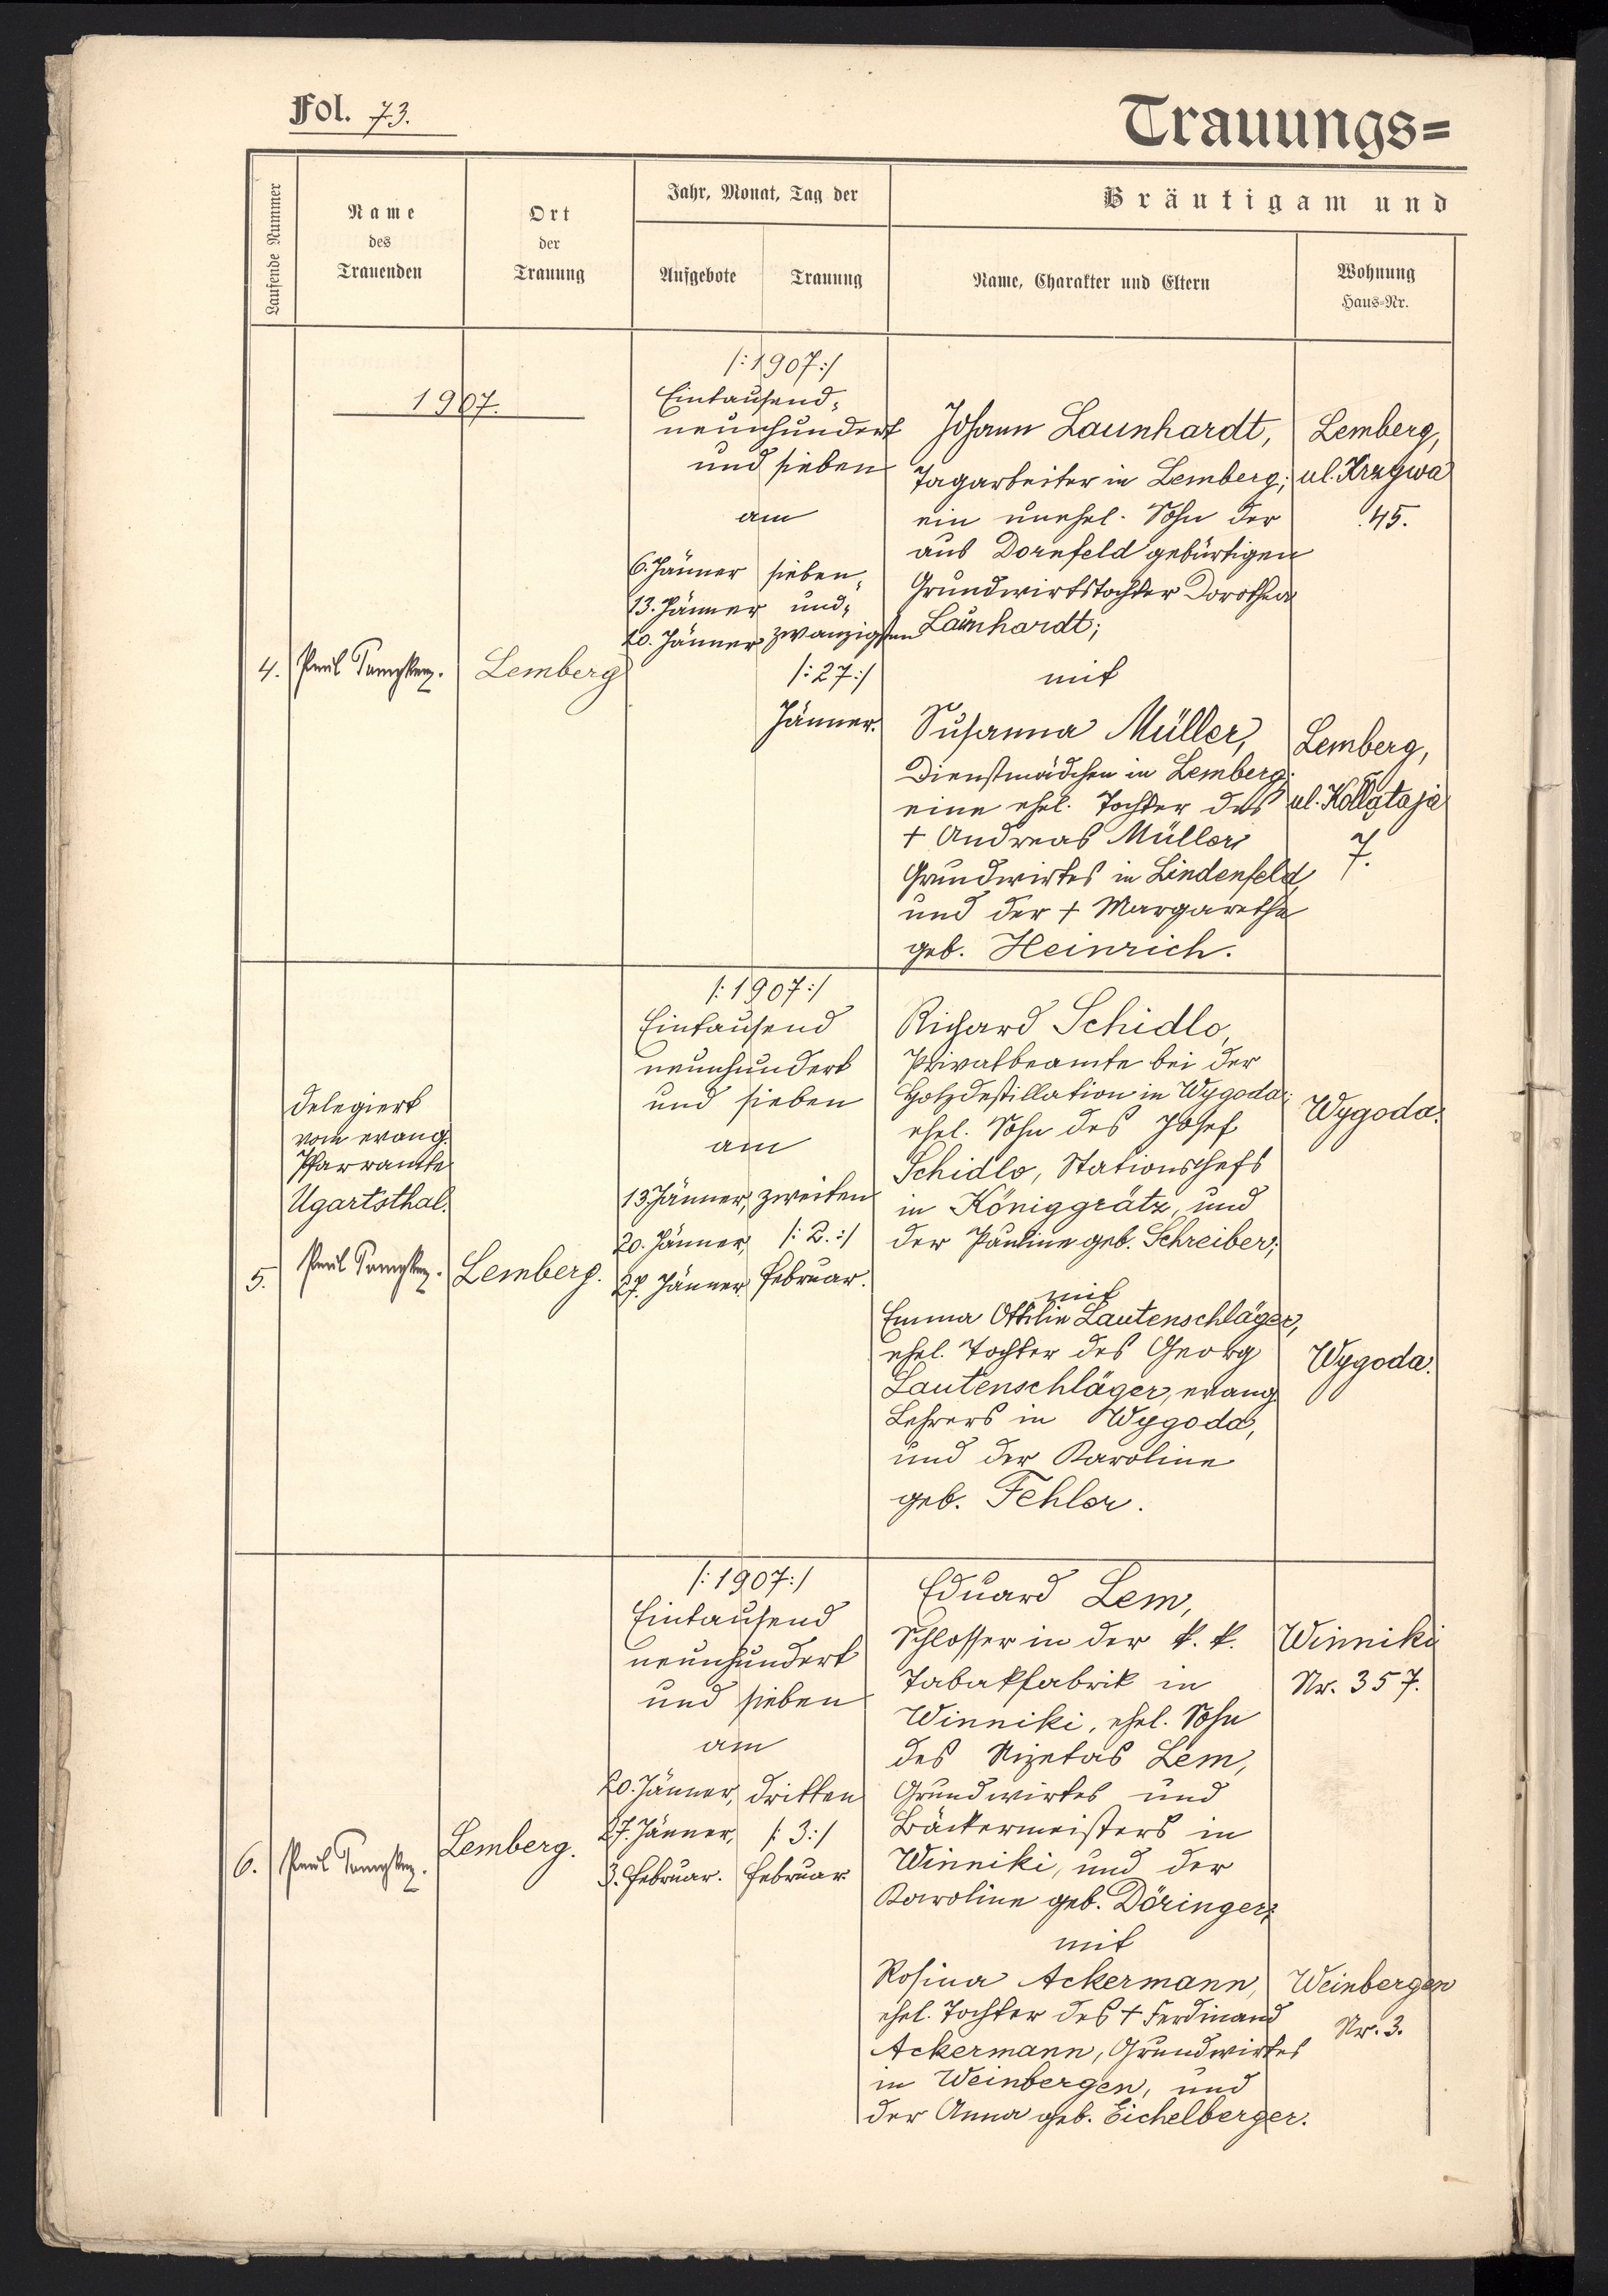 Fol. 73.
Trauungs=
Laufende Nummer
Name
des
Trauenden
Ort
der
Trauung
Jahr, Monat, Tag der
Aufgebote
Trauung
Bräutigam und
Name, Charakter und Eltern
Wohnung
Haus=Nr.
1907.
/:1907:/
Eintausend=
neunhundert
und sieben
am
6. Jänner
13. Jänner
20. Jänner
sieben=
und=
zwanzigsten
/:27:/
Jänner.
4.
Paul
Lemberg
Johann Launhardt,
Tagarbeiter in Lemberg;
ein unehel. Sohn der
aus Dornfeld gebürtigen
Grundwirtstochter Dorothea
Launhardt;
mit
Susanna Müller,
Dienstmädchen in Lemberg;
eine ehel. Tochter des
+ Andreas Müller,
Grundwirtes in Lindenfeld,
und der + Margarethe
geb. Heinrich.
Lemberg,
ul. Krzywa
45.
Lemberg,
ul. Kołłątaja
7.
5.
delegiert
vom evang.
Pfarramte
Ugartsthal.
Paul
Lemberg.
/:1907:/
Eintausend
neunhundert
und sieben
am
13. Jänner,
20. Jänner,
27. Jänner.
zweiten
/:2.:/
Februar.
Richard Schidlo,
Privatbeamte bei der
Holzdestillation in Wygoda;
ehel. Sohn des Josef
Schidlo, Stationschefs
in Königgrätz, und
der Pauline geb. Schreiber;
mit
Emma Ottilie Lautenschläger,
ehel. Tochter des Georg
Lautenschläger, evang.
Lehrers in Wygoda,
und der Karoline
geb. Fehler.
Wygoda.
Wygoda.
6.
Paul
Lemberg.
/:1907:/
Eintausend
neunhundert
und sieben
am
20. Jänner,
27. Jänner,
3. Februar.
dritten
/:3:/
Februar
Eduard Lem,
Schlosser in der k. k.
Tabakfabrik in
Winniki, ehel. Sohn
des Nizetas Lem,
Grundwirtes und
Bäckermeisters in
Winniki, und der
Karoline geb. Döringer;
mit
Rosina Ackermann,
ehel. Tochter des + Ferdinand
Ackermann, Grundwirtes
in Weinbergen, und
der Anna geb. Eichelberger.
Winniki
Nr. 357.
Weinbergen
Nr. 3.